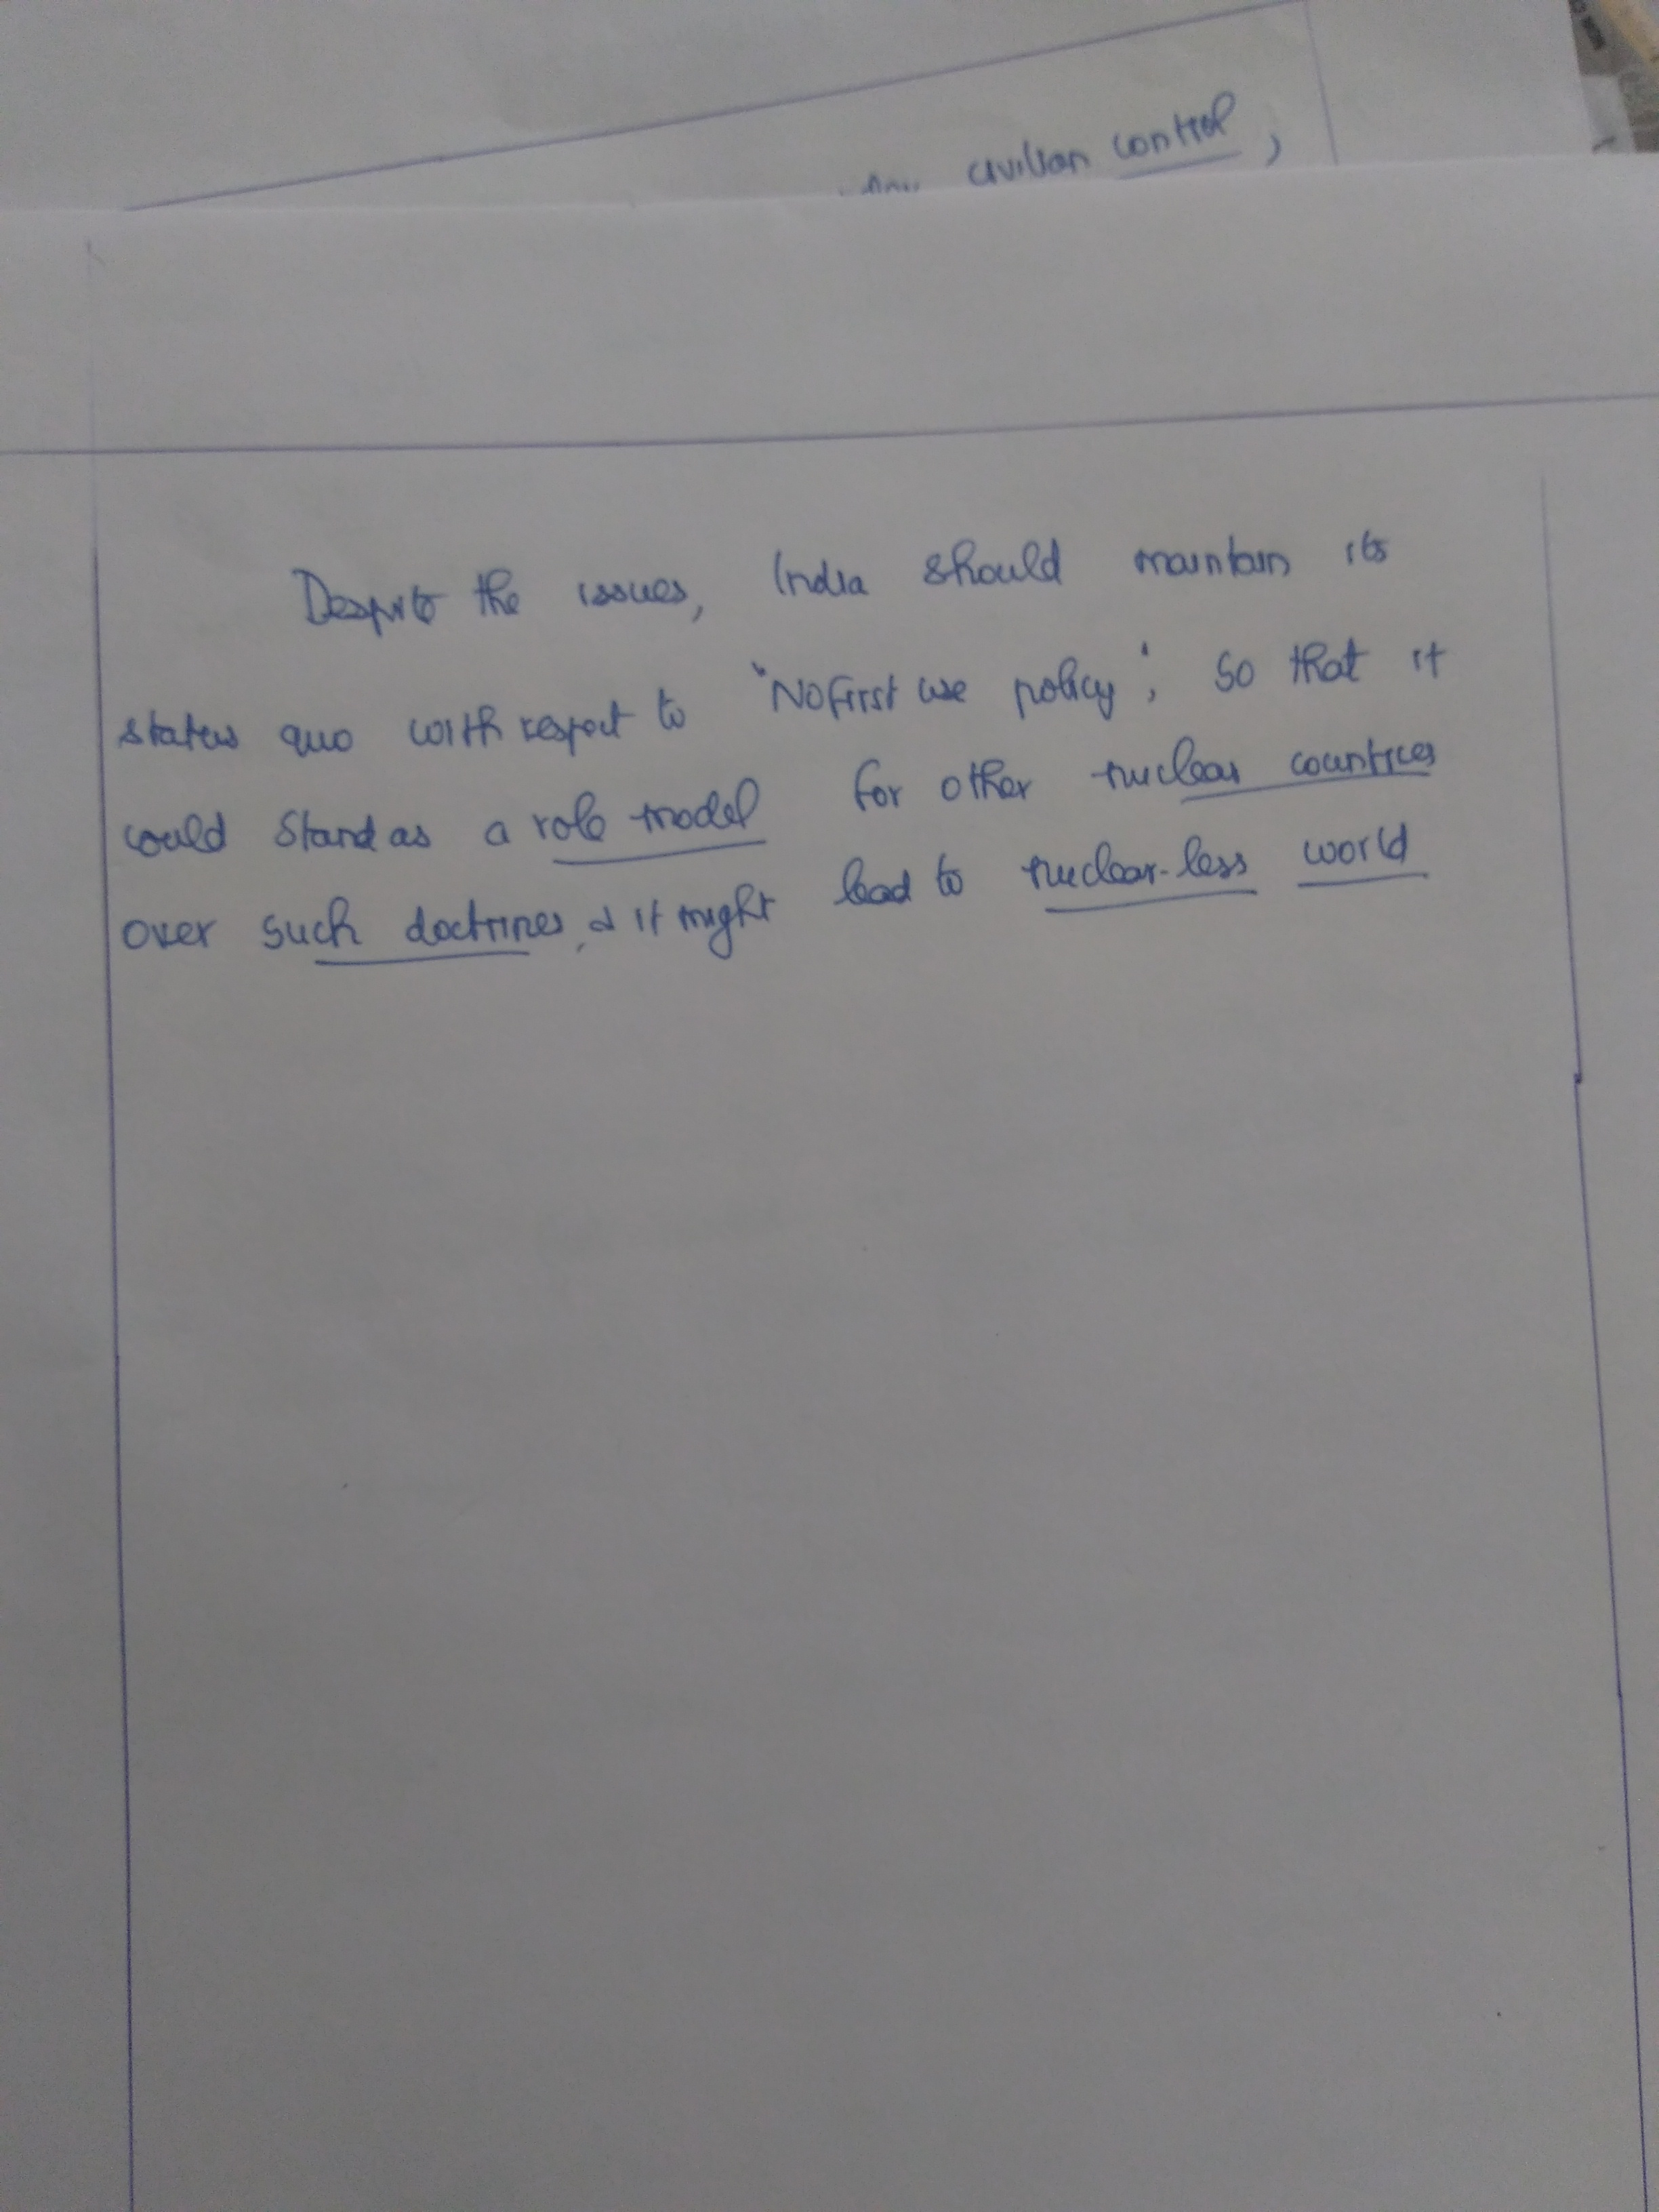 civilian control,
Despite the issues, India should maintain its
status quo with respect to "No First use policy", so that it
could stand as a role model for other nuclear countries
over such doctrines, & it might lead to nuclear-less world